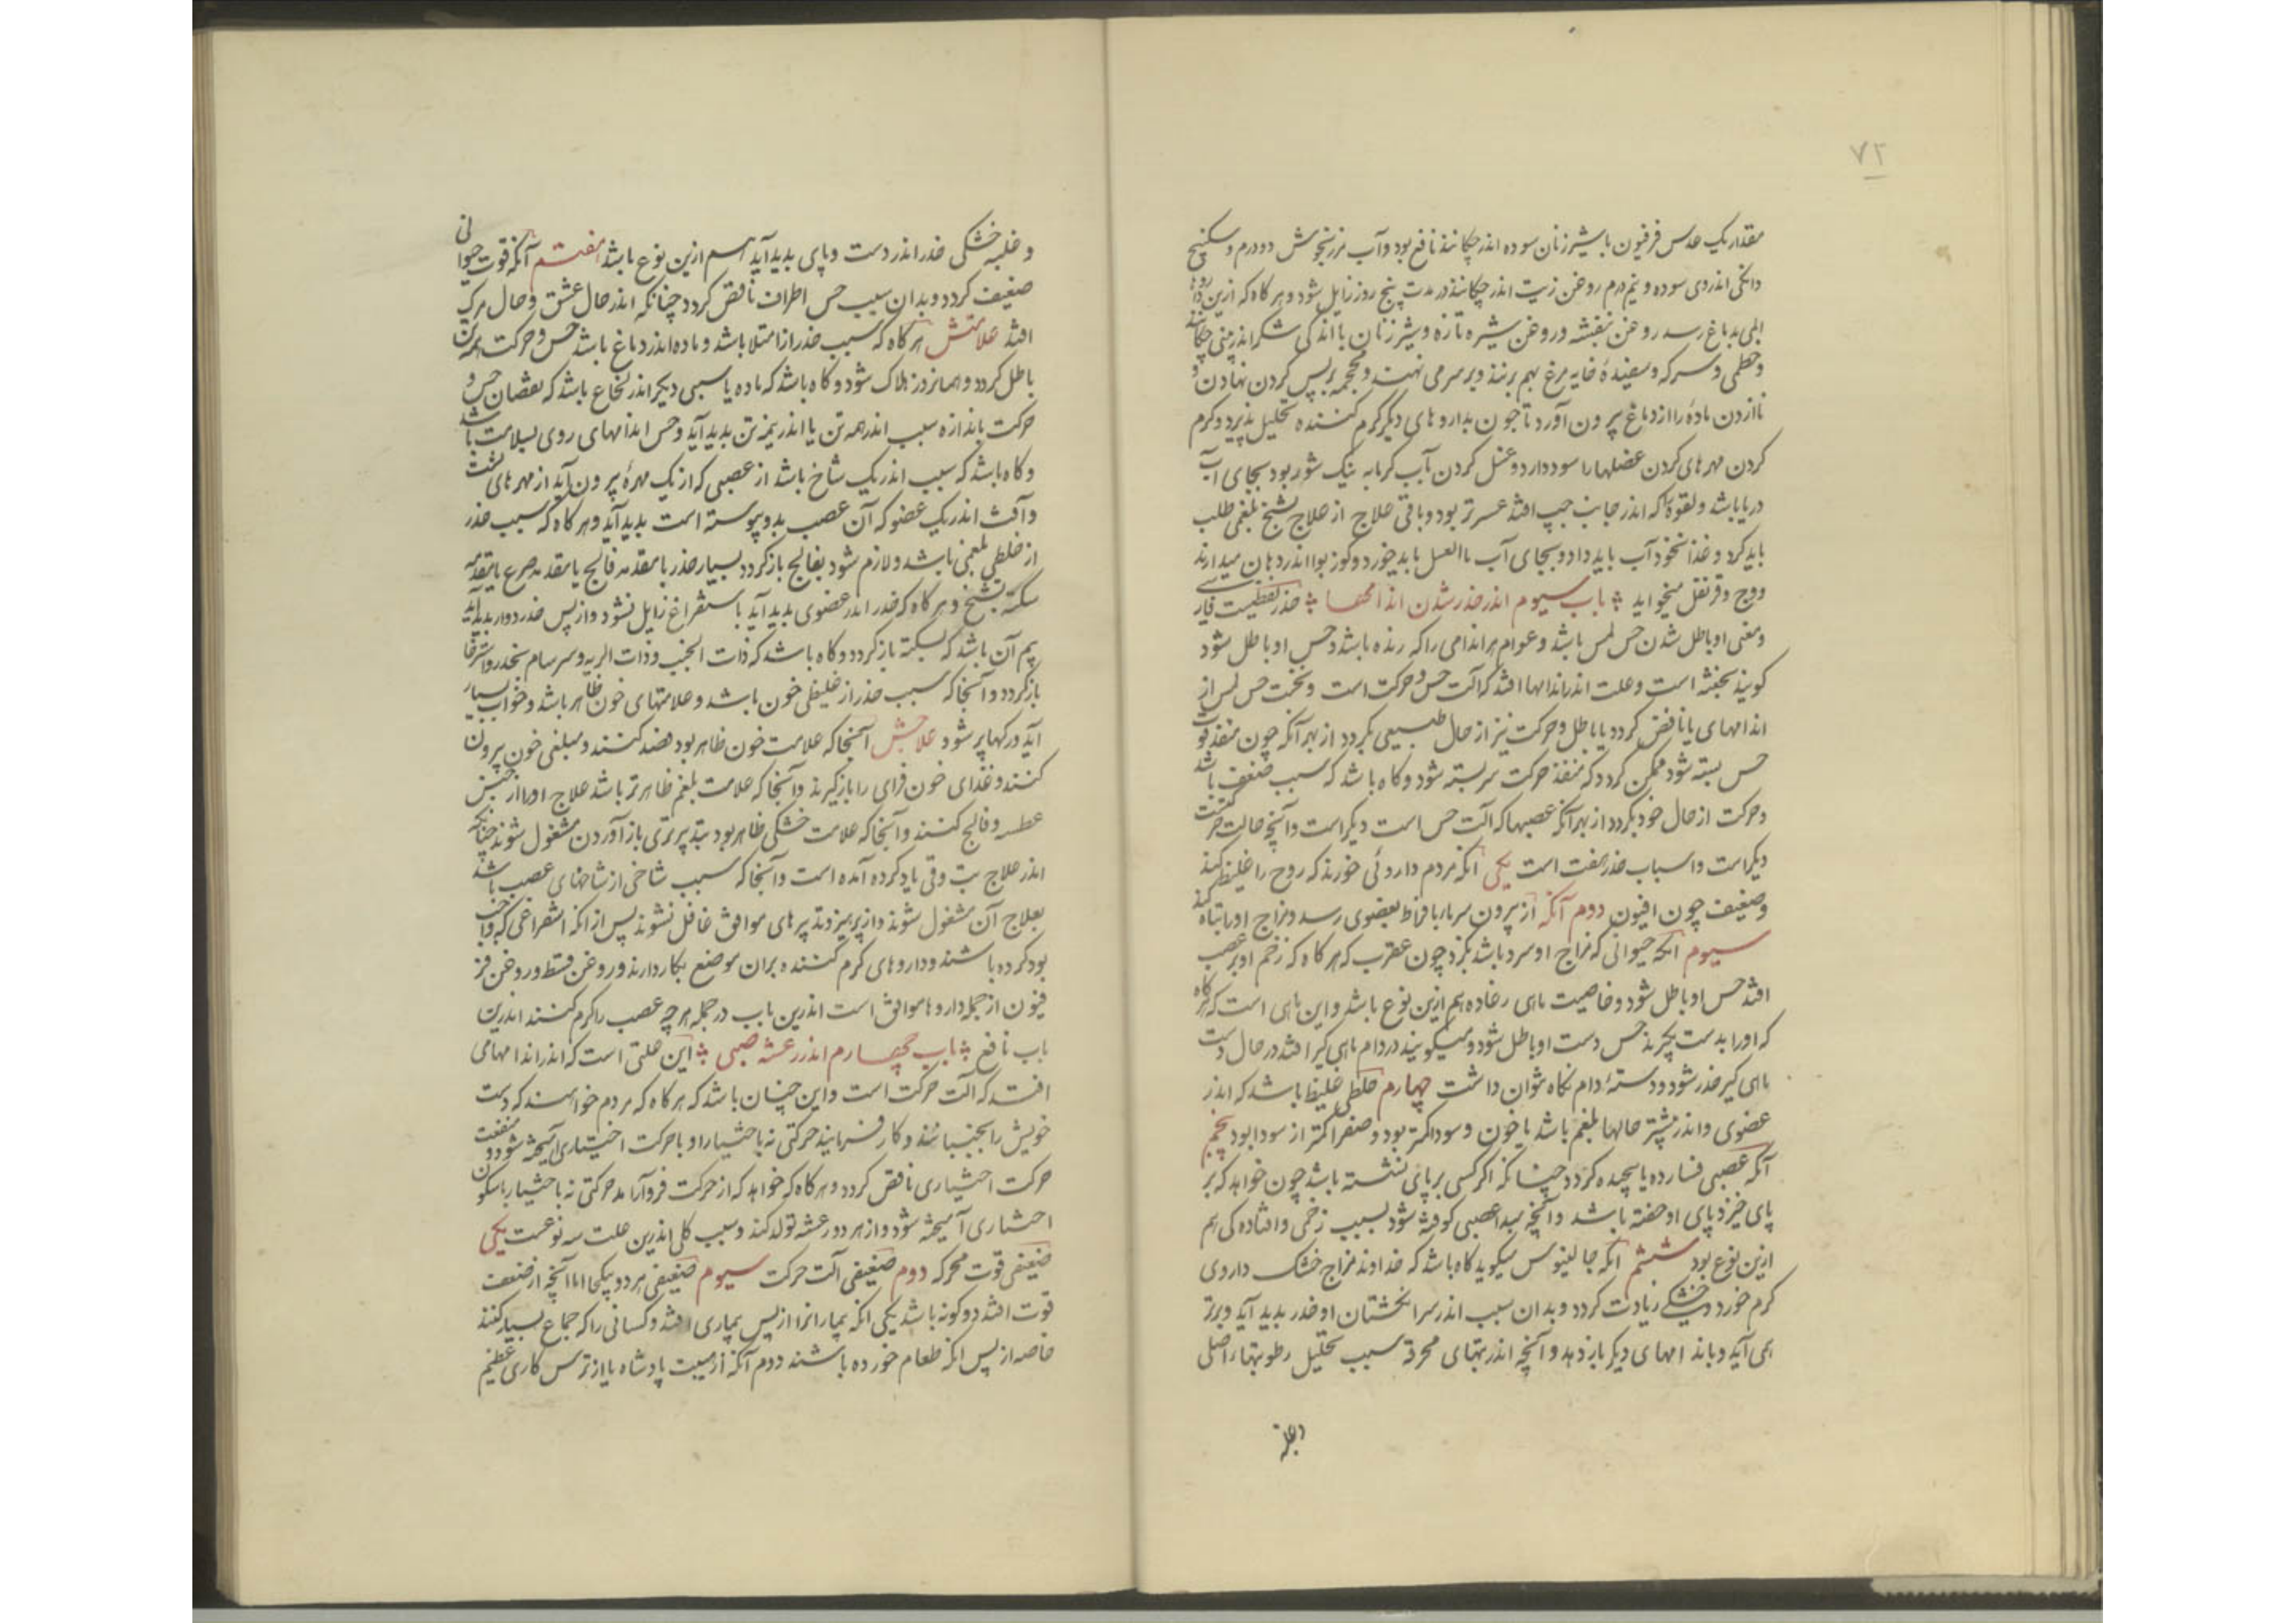 ۷۲
مقدار یک عدس فرفیون با شیر زنان سوده اندر چکانند نافع بود و آب مرزنجوش دو درم و سکبینج
دانکی اندر وی سوده و نیم درم روغن زیت اندر چکانند در مدت پنج روز زایل شود و هرکاه که ازین داروها
المی بدماغ رسد روغن بنفشه و روغن شیره تازه و شیر زنان با اندکی شکر اندر بینی چکانند
و خطمی و سرکه و سفیدۀ خایه مرغ بهم برنند و بر سر می نهند و محجمه بر پس کردن نهادن و
تا آزدن ماده را از دماغ بیرون آورد تا چون بداروهای دیکر کرم کننده تحلیل پذیرد و کرم
کردن مهرهای کردن عضلها را سود دارد و غسل کردن بآب کرمابه نیک شور بود بجای آب
دریا باشد و لقوۀ که اندر جانب چپ افتد عسرتر بود و باقی علاج از علاج تشنج بلغمی طلب
باید کرد و غذا نخود آب باید داد و بجای آب ماالعسل باید خورد و کوز بوا اندر دهان میدارند
و وج و قرنفل میخواید باب سیوم اندر خدر شدن اندامها خدر لفظیست
و معنی او باطل شدن حس لمس باشد و عوام هر اندامی را که زنده باشد و حس او باطل شود
کویند بخفته است و علت اندر اندامها افتد که آلت حس و حرکت است و نخست حس لمس از
اندامهای یا ناقص کردد یا باطل و حرکت نیز از حال طبیعی بکردد از بهر آنکه چون منفذ قوت
حس بسته شود ممکن کردد که منفذ حرکت سر بسته شود و کاه باشد که سبب ضعیف باشد
و حرکت از حال خود بکردد از بهر آنکه عصبها که آلت حس است دیکر است و آنچه حالت حرکت
دیکر است و اسباب خدر هفت است یکی آنکه مردم داروئی خورند که روح را غلیظ کند
و ضعیف چون افیون دوم آنکه از بیرون سرما بافراط بعضوی رسد و مزاج او را تباه کند
سیوم آنکه حیوانی که مزاج او سرد باشد بکزد چون عقرب که هرکاه که زخم او بر عصب
افتد حس او باطل شود و خاصیت ماهی رعاده هم ازین نوع باشد و این ماهی است که هرکاه
که او را بدست بکیرند حس دست او باطل شود و میکویند در دام ماهی کیر افتد در حال دست
ماهی کیر خدر شود و دستۀ دام نکاه نتوان داشت چهارم خلطی غلیظ باشد که اندر
عضوی و اندر بیشتر حالها بلغم باشد یا خون و سودا کمتر بود و صفرا کمتر از سودا بود پنجم
آنکه عصبی فسارده یا پیچیده کردد چنانکه اکر کسی بر پای نشسته باشد چون خواهد که بر
پای خیزد پای او خفته باشد و آنچه مبدا عصبی کوفته شود بسبب زخمی و افتاده کی هم
ازین نوع بود ششم آنکه جالینوس میکوید کاه باشد که خداوند مزاج خشک داروی
کرم خورد و خشکی زیادت کردد و بدان سبب اندر سر انکشتان او خدر بدید آید و برتر
همی آید و باندامهای دیکر باز دهد و آنچه اندر تبهای محرقه سبب تحلیل رطوبتهاء اصلی
و غلبه
و غلبه خشکی خدر اندر دست و پای بدید آید هم ازین نوع باشد هفتم آنکه قوت حیوانی
ضعیف کردد و بدان سبب حس اطراف ناقص کردد چنانکه اندر حال عشق و حال مرک
افتد علامتش هرکاه که سبب خدر از امتلا باشد و ماده اندر دماغ باشد حس و حرکت همه تن
باطل کردد و همانروز هلاک شود و کاه باشد که ماده یا سببی دیکر اندر نخاع باشد که نقصان حس و
حرکت باندازه سبب اندر همه تن یا اندر نیمه تن بدید آید و حس اندامهای روی بسلامت باشد
و کاه باشد که سبب اندر یک شاخ باشد از عصبی که از یک مهرۀ بیرون آید از مهرهای پشت
و آفت اندر یک عضو که آن عصب بدو پیوسته است بدید آید و هرکاه که سبب خدر
از خلطی بلغمی باشد و لازم شود بفالج باز کردد بسیار خدر یا مقدمه فالج یا مقدمه صرع یا مقدمه
سکته یا تشنج و هرکاه که خدر اندر عضوی بدید آید باستفراغ زایل نشود و از پس خدر دوار بدید آید
بیم آن باشد که بسکته باز کردد و کاه باشد که ذات الجنب و ذات الریه و سرسام بخدر و استرخا
باز کردد و آنجا که سبب خدر از غلیظی خون باشد و علامتهای خون ظاهر باشد و خواب بسیار
آید و رکها پر شود علاجش آنجا که علامت خون ظاهر بود فصد کنند و مبلغی خون بیرون
کنند و غذای خون فزای را باز کیرند و آنجا که علامت بلغم ظاهرتر باشد علاج او را از جنس
و فالج کنند و آنجا که علامت خشکی ظاهر بود بتدبیر تری باز آوردن مشغول شوند چنانکه
اندر علاج تب دق یاد کرده آمده است و آنجا که سبب شاخی از شاخهای عصب باشد
بعلاج آن مشغول شوند و از پرهیز و تدبیرهای موافق غافل نشوند پس از آنکه استفراغی که واجب
بود کرده باشند و داروهای کرم کننده بران موضع بکار دارند و روغن قسط و روغن فر
فیون از جمله داروها موافق است اندرین باب در جمله هر چه عصب را کرم کنند اندرین
باب نافع باب چهارم اندر رعشه عصبی این علتی است که اندر اندامهای
افتد که آلت حرکت است و این چنان باشد که هرکاه که مردم خواهند که دست
خویش را بجنبانند و کار فرمایند حرکتی نه باختیار او با حرکت اختیاری آمیخته شود و منفعت
حرکت اختیاری ناقص کردد و هرکاه که خواهد که از حرکت فرو آرامد حرکتی نه باختیار با سکون
اختیاری آمیخته شود و از هر دو رعشه تولد کند و سبب کلی اندرین علت سه نوعست یکی
ضعیفی قوت محرکه دوم ضعیفی آلت حرکت سیوم ضعیفی هر دو بیکجا اما آنچه از ضعف
قوت افتد دو کونه باشد یکی آنکه بیمارانرا از پس بیماری افتد و کسانی را که جماع بسیار کنند
خاصه از پس آنکه طعام خورده باشند دوم آنکه از هیبت پادشاه یا از ترس کاری عظیم